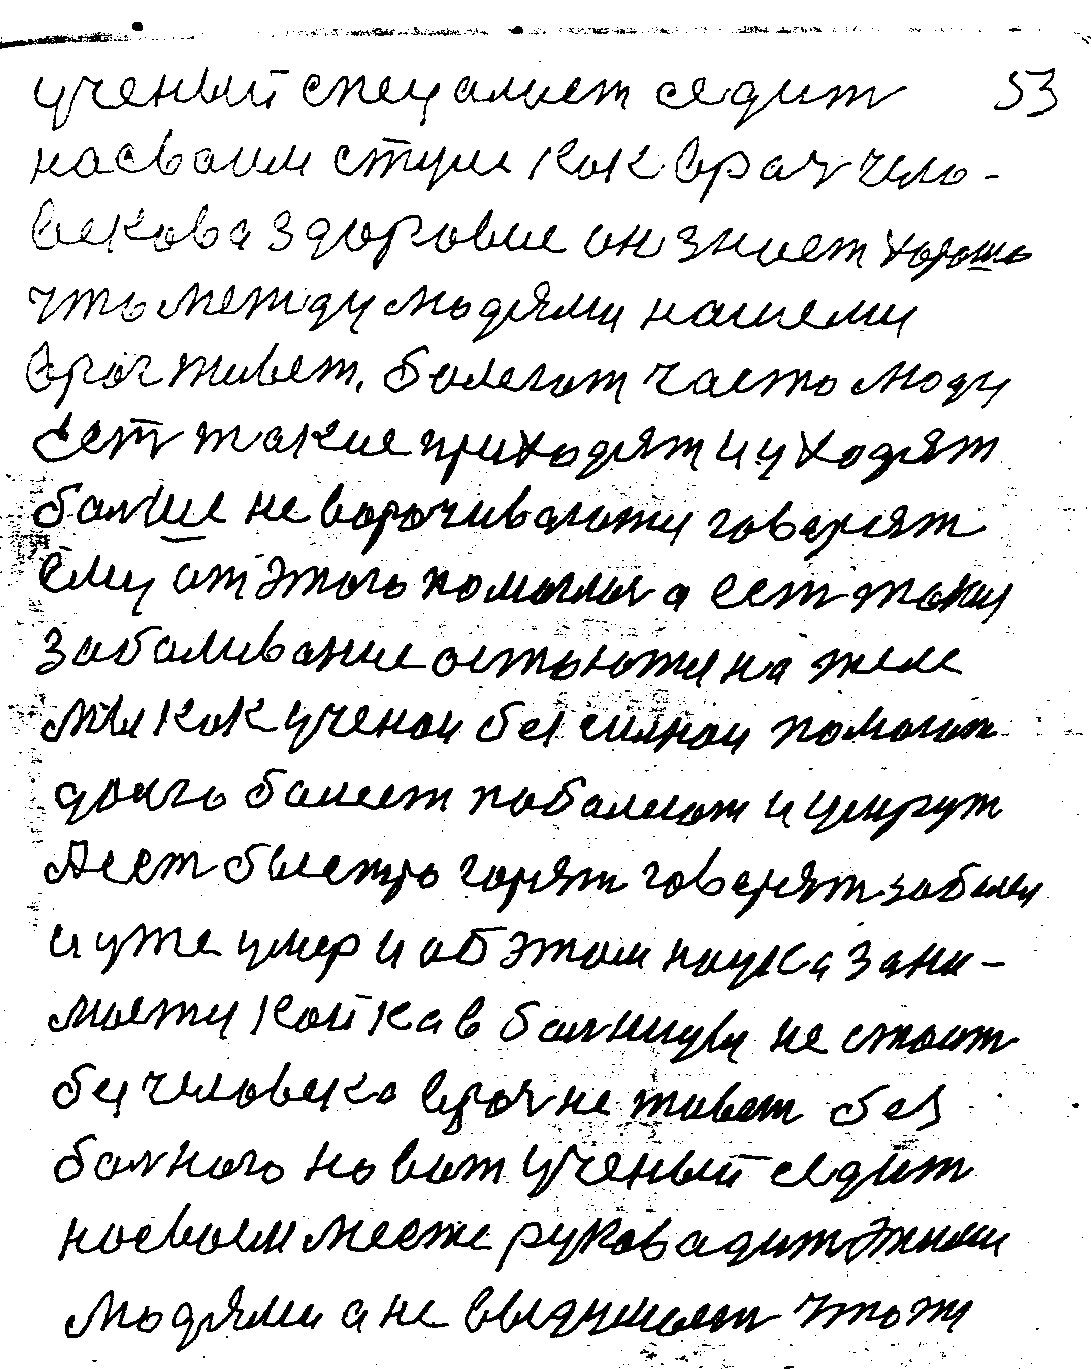 ученый спецалист седит 53
насваим стуле как врач чело-
векова здоровие он знает хорошо
что между людями нашеми
врач живет. болеют часто люди
ест такие приходят и уходят
болше не ворочиваюти говерят
ему от этого помогли а ест таки
заболивание остаютя на теле
мы как ученои безсилнои помогат
долго болеет поболеют и умирут
Аест быстро горят говерят заболел
и уже умер и об этом наука зани-
маети койка в болницы не стоит
без человека врач не живет без
болного но вот ученый седит
насвоем месте руковадит этими
людями а не выдумает чтожи